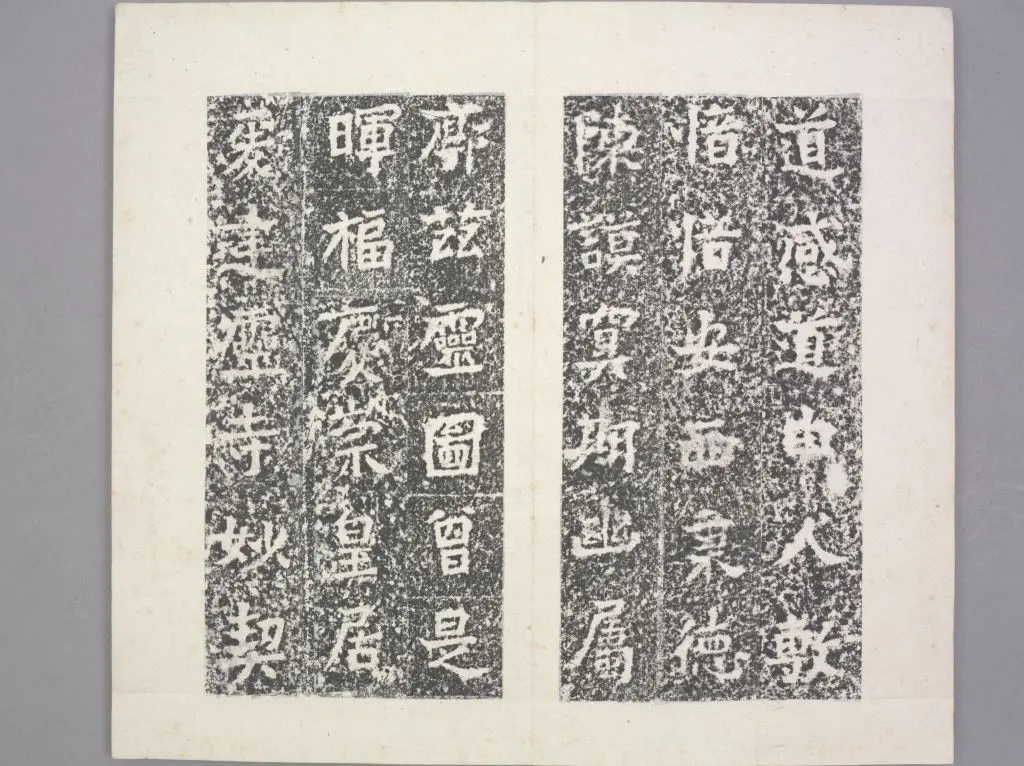 道感道由人敷
愔愔安西秉德
陳謨冥期幽屬
廓茲靈圖曾是
暉福慶崇皇居
爰建靈寺妙契